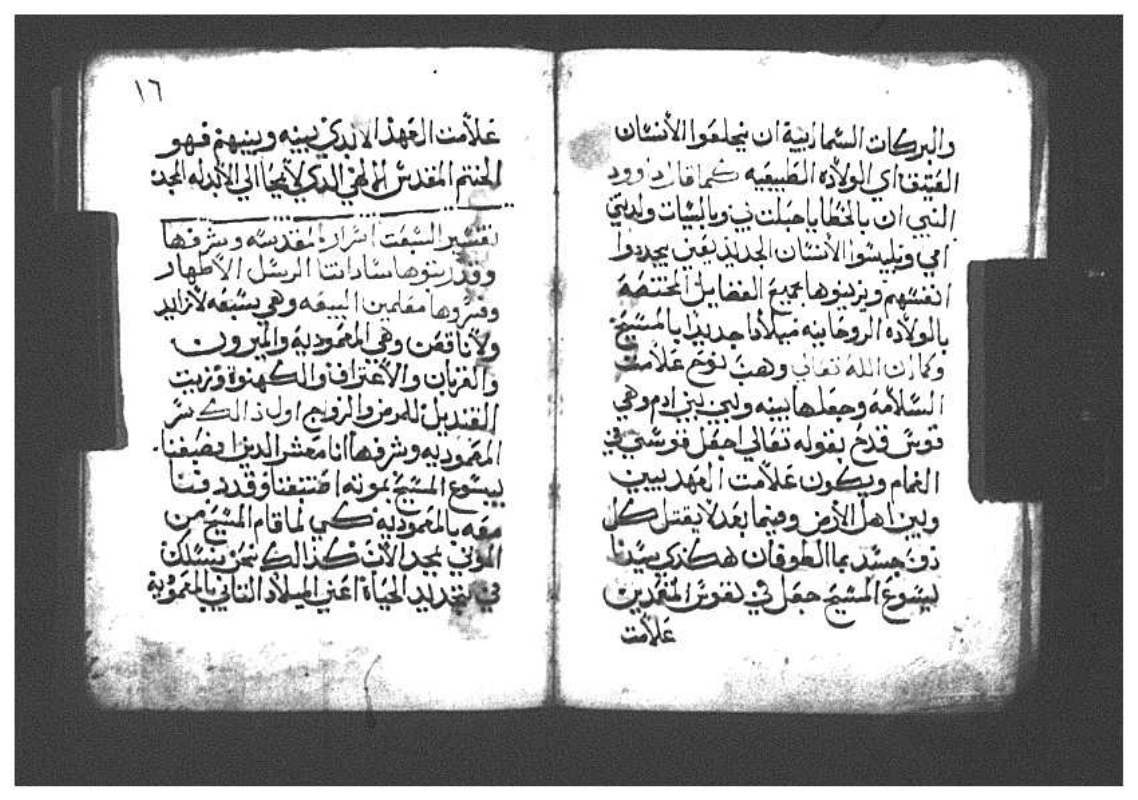 والبركات السمائية ان يخلعوا الأنسان
العتيق اي الولاده الطبيعيه كما قال داوود
النبي ان بالخطايا حبلت بي وبالسيات ولدتني
امي ويلبسوا الأنسان الجديد يعني يجددوا
انفسهم ويزينوها بجميع الفضايل المختصه
بالولاده الروحانيه ميلادا جديدا بالمسيح
وكما ان الله تعالي وهب نوح علامت
السلامه وجعلها بينه وبين بني ادم وهي
قوس قدح بقوله تعالي اجعل قوسي في
الغمام ويكون علامت العهد بيني
وبين اهل الأرض وفيما بعد لا يقتل كل
ذي جسد بما الطوفان هكذي سيدنا
يسوع المسيح جعل في نفوس المعمدين
علامت
١٦
علامت العهد الابدي بينه وبينهم فهو
الختم المقدس الالهي الذي لا يمحا الي الأبد له المجد
تفسير السبعت اسرار المقدسه وشرفها
وقد رتبوها ساداتنا الرسل الأطهار
وفسروها معلمين البيعه وهي سبعه لا زايد
ولا ناقص وهي المعموديه والميرون
والقربان والأعتراف والكهنوة وزيت
القنديل للمرضي والزواج اول ذالك سر
المعموديه وشرفها انا معشر الذين اصطبغنا
بيسوع المسيح بموته اصتبغنا وقد دفنا
معه بالمعموديه كي لما قام المسيح من
الموتي بمجد الاب كذالك نحن نسلك
في تجديد الحياة اعني الميلاد التاني بالمعمودية